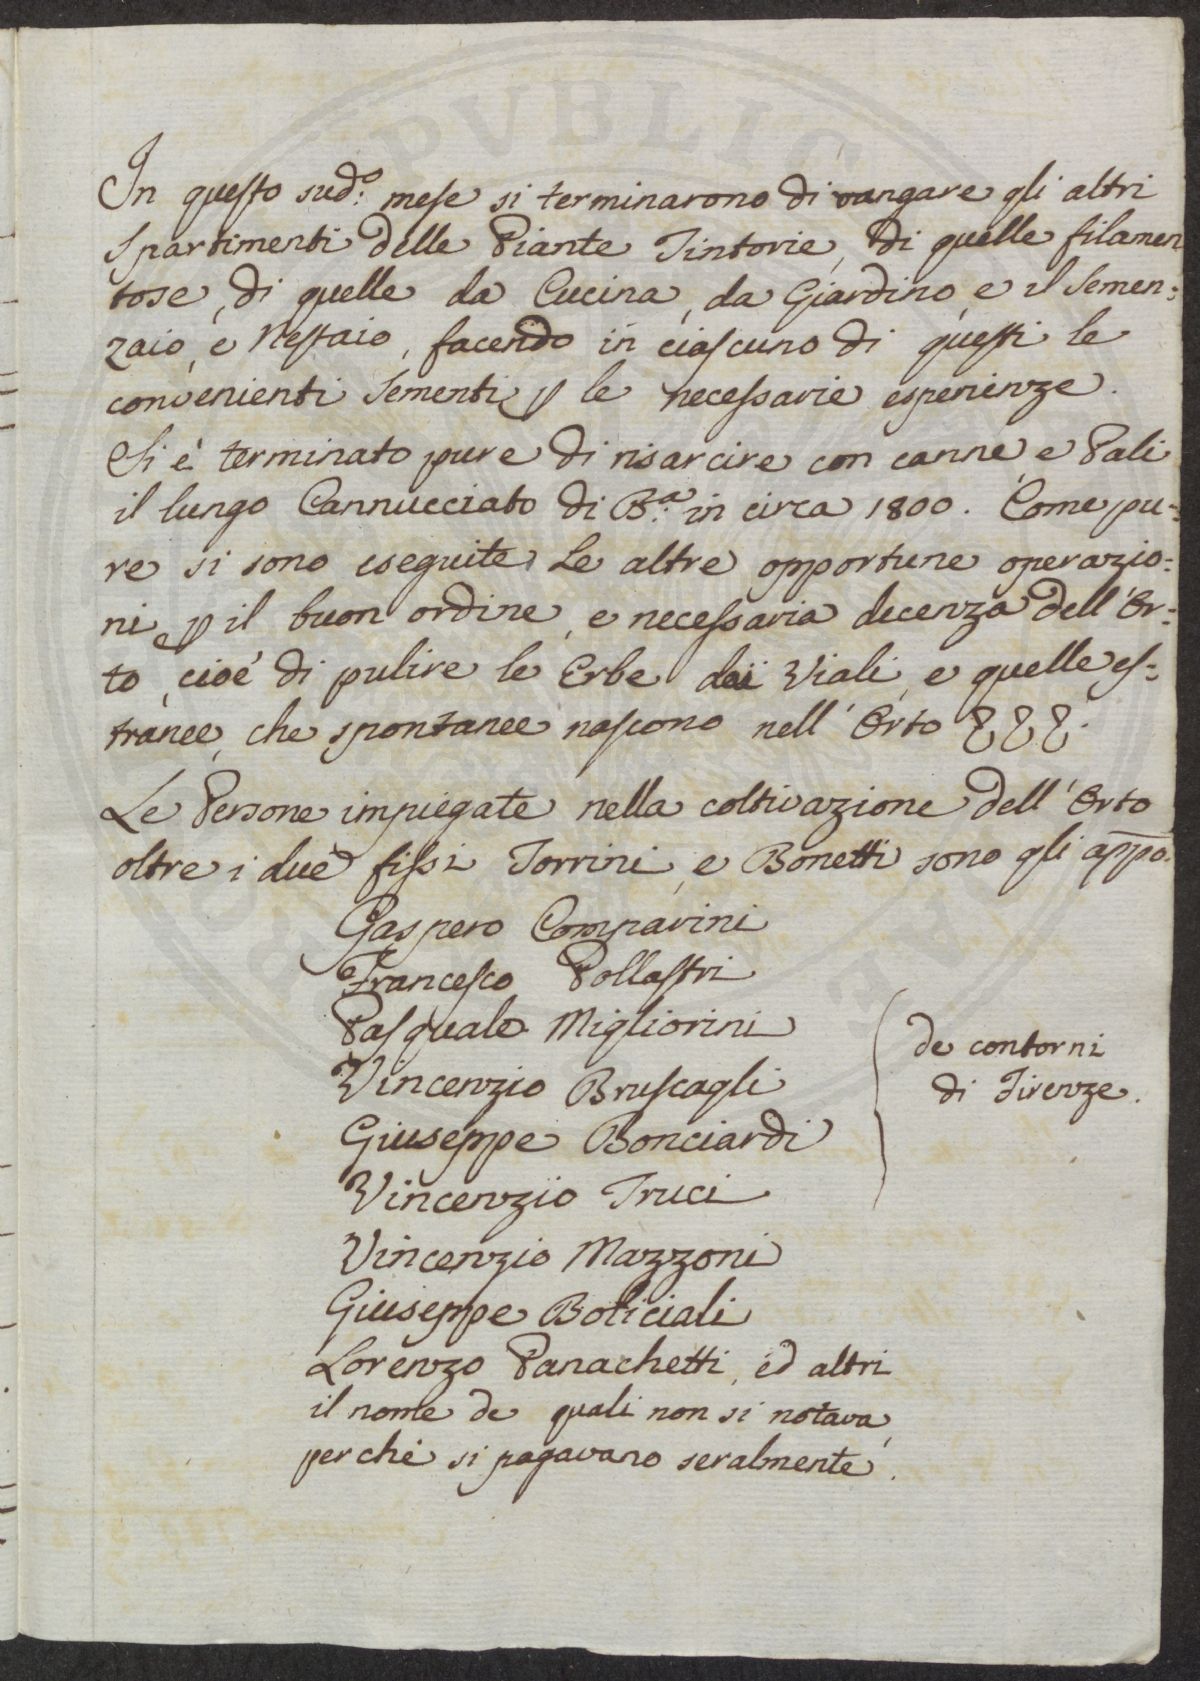 In questo sud.o mese si terminarono di vangare gli altri
Spartimenti delle Piante Tintorie, di quelle filamen
tose, di quelle da Cucina, da Giardino, e il Semen:
zaio, e Nestaio, facendo in ciascuno di questi le
convenienti Sementi p le necessarie esperienze.
Si è terminato pure di risarcire con canne, e Pali
il lungo Cannucciato di B.a in circa 1800. Come pu:
re si sono eseguite le altre opportune operazio:
ni p il buon ordine, e necessaria decenza dell'Or:
to, cioè di pulire le Erbe dai Viali, e quelle es:
tranee, che spontanee nascono nell'Orto
Le Persone impiegate nella coltivazione dell'Orto
oltre i due fissi Torrini, e Bonetti sono gli appo.
Gaspero Comparini
Francesco Pollastri
Pasquale Migliorini
Vincenzio Bruscagli
Giuseppe Bonciardi
Vincenzio Truci
de contorni
di Firenze.
Vincenzio Mazzoni
Giuseppe Boticiali
Lorenzo Panachetti, ed altri
il nome de quali non si notava,
perchè si pagavano seralmente.
PVBLIC